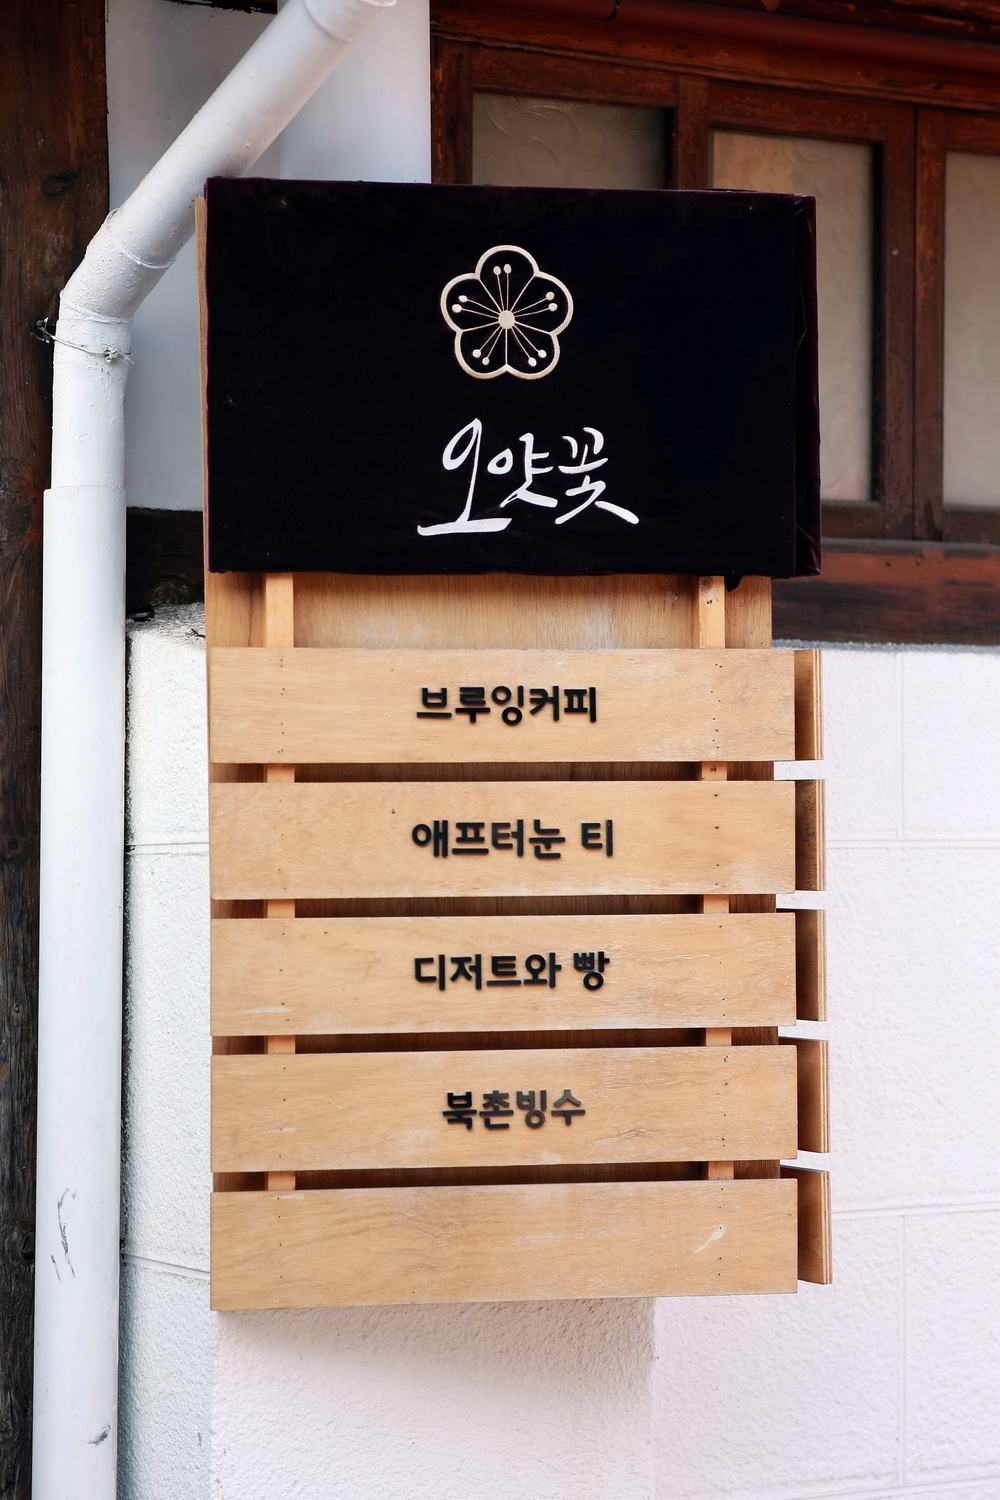 오얏꽃
브루잉커피
애프터눈 티
디저트와 빵
북촌빙수